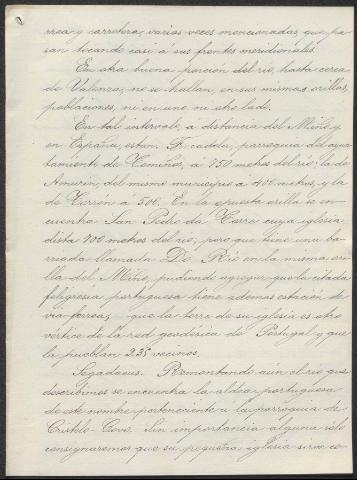 rrea y carretera, varias veces mencionadas, que pa-
san tocando casi á sus frentes meridionales.
En otra buena porción del río, hasta cerca
de Valenza, no se hallan, en sus mismas orillas,
poblaciones, ni en uno ni otro lado.
En tal intervalo, á distancia del Miño y
en España, están, F. cadela, parroquia del ayun
tamiento de Tomiño, á 750 metros del río; la de
Amorín, del mismo municipio á 400 metros, y la
de Forrón a 500. En la opuesta orilla se en-
cuentra San Pedro da Torre cuya iglesia
dista 700 metros del río; pero que tiene una ba-
rriada llamada Do Rio en la misma ori-
lla del Miño, pudiendo agregar que la citada
feligresía portuguesa tiene además estación de
vía férrea, que la torre de su iglesia es otro
vértice de la red geodésica de Portugal y que
la pueblan 235 vecinos.
Segadaens. Remontando aún el río que
describimos se encuentra la aldea portuguesa
de este nombre perteneciente a la parroquia de
Cristelo-Covo. Sin importancia alguna solo
consignaremos que su pequeña iglesia sirve co-